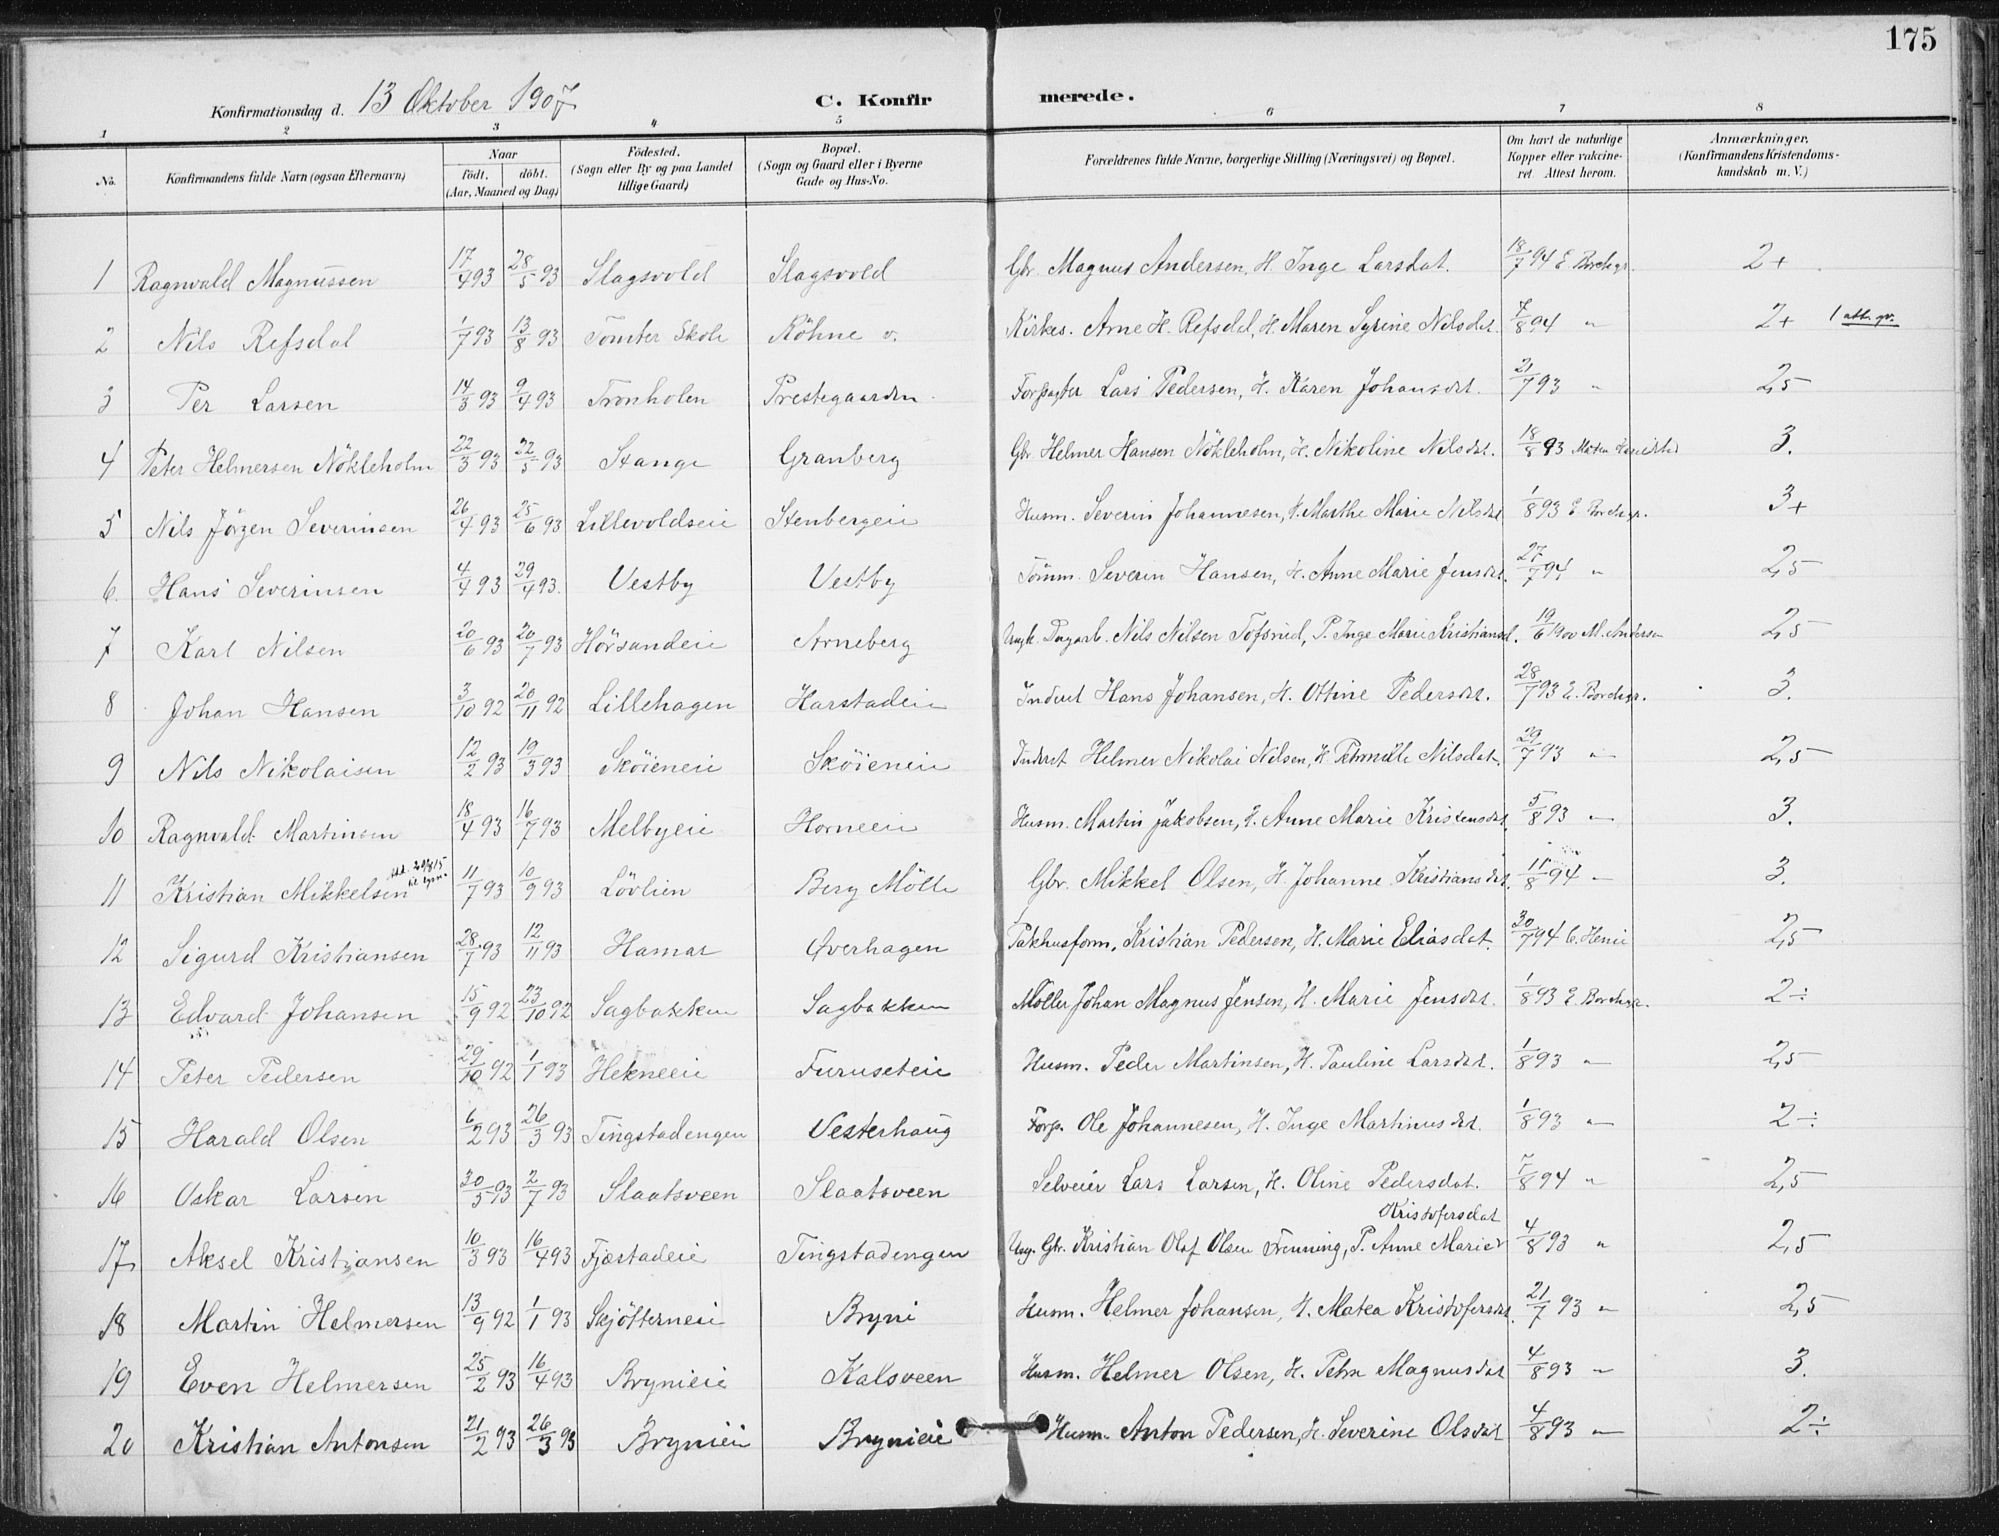 175
Konfirmationsdag d. 13 Oktober 1907 C. Konfirmerede.
1 2 3 4 5 6 7 8
No. Konfirmandens fulde Navn (ogsaa Efternavn) Naar födt. döbt. (Aar, Maaned og Dag) Födested. (Sogn eller By og paa Landet tillige Gaard) Bopæl. (Sogn og Gaard eller i Byerne Gade og Hus-No. Forældrenes fulde Navne, borgerlige Stilling (Næringsvei) og Bopæl. Om havt de naturlige Kopper eller vakcineret. Attest herom. Anmærkninger. (Konfirmandens Kristendomskundskab m. V.)
1 Ragnvald Magnussen 17/4 93 28/5 93 Slagsvold Slagsvold Gbr. Magnus Andersen, H. Inge Larsdat. 18/7 94 E. Borchgr. 2+
2 Nils Refsdal 1/7 93 13/8 93 Tomter Skole Köhne ö. Kirkes. Arne H. Refsdal, H. Maren Syrine Nilsdat. 7/8 94 " 2+ 1 att. gr.
3 Per Larsen 14/3 93 9/4 93 Tronholen Prestegaarden Forpagter Lars Pedersen, H. Karen Johansdat. 21/7 93 " 2,5
4 Peter Helmersen Nökleholm 22/3 93 22/5 93 Stange Granberg Gbr. Helmer Hansen Nökleholm, H. Nikoline Nilsdat. 18/8 93 3.
5 Nils Jörgen Severinsen 26/4 93 25/6 93 Lillevoldseie Stenbergeie Husm. Severin Johannesen, H. Marthe Marie Nilsdat 1/8 93 E. Borchgr. 3+
6. Hans Severinsen 4/4 93 29/4 93. Vestby Vestby Tömm. Severin Hansen, H. Anne Marie Jensdat. 27/7 94 " 2,5
7 Karl Nilsen 20/6 93 20/7 93 Hörsandeie Arneberg Ungk. Dagarb. Nils Nilsen Tofsrud, P. Inge Marie Kristiansd. 19/6 1900 M. Andersen 2,5
8 Johan Hansen 3/10 92 20/11 92 Lillehagen Harstadeie Inderst Hans Johansen, H. Ottine Pedersdat. 28/7 93 E. Borchgr. 3.
9 Nils Nikolaisen 12/2 93 19/3 93 Sköieneie Sköieneie Inderst Helmer Nikolai Nilsen, H. Petronelle Nilsdat. 29/7 93 " 2,5
10 Ragnvald Martinsen 18/4 93 16/7 93 Melbyeie Horneeie Husm. Martin Jakobsen, H. Anne Marie Kristensdat. 5/8 93 " 3.
11 Kristian Mikkelsen 11/7 93 10/9 93 Lövlien Berg Mölle Gbr. Mikkel Olsen, H. Johanne Kristiansdat. 11/8 94 " 3.
12 Sigurd Kristiansen 28/7 93 12/11 93 Hamar Överhagen Pakhusform. Kristian Pedersen, H. Marie Eliasdat. 30/7 94 C. Henie 2,5
13 Edvard Johansen 15/9 92 23/10 92 Sagbakken Sagbakken Möller Johan Magnus Jensen, H. Marie Jensdat. 1/8 93 E. Borchgr. 2÷
14 Peter Pedersen 29/10 92 1/1 93 Hekneeie Furuseteie Husm. Peder Martinsen, H. Pauline Larsdat. 1/8 93 " 2,5
15 Harald Olsen 6/2 93 26/3 93 Tingstadengen Vesterhaug Forp. Ole Johannesen, H. Inge Martinusdat. 1/8 93 " 2÷
16 Oskar Larsen 30/5 93 2/7 93 Slaatsveen Slaatsveen Selveier Lars Larsen, H. Oline Pedersdat. 7/8 94 " 2,5
17 Aksel Kristiansen 10/3 93 16/4 93 Fjæstadeie Tingstadengen Ung. Gbr. Kristian Olaf Olsen Frenning, P. Anne Marie Kristofersdat 4/8 93 " 2,5
18 Martin Helmersen 13/9 92 1/1 93 Skjötterneie Bryni Husm. Helmer Johansen, H. Matea Kristofersdat. 21/7 93 " 2,5
19 Even Helmersen 25/2 93 16/4 93 Brynieie Kalsveen Husm. Helmer Olsen, H. Petra Magnusdat 4/8 93 " 3.
20 Kristian Antonsen 21/2 93 26/3 93 Brynieie Brynieie Husm. Anton Pedersen, H. Severine Olsdat 4/8 93 " 2÷